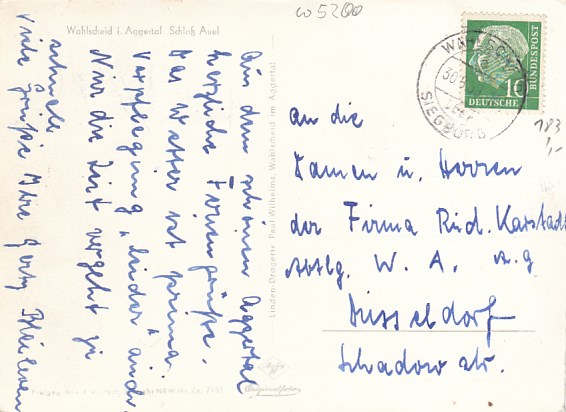 w 5200
Wahlscheid i. Aggertal Schloß Auel
Aus dem schönen Aggertal
herzliche Feriengrüße.
Das Wetter ist prima.
Verpflegung "leider" auch
Nur die Zeit vergeht zu
schnell
Viele Grüße Ihre
Linden-Drogerie Paul Wilhelms, Wahlscheid im Aggertal
Originalfoto
DEUTSCHE
BUNDESPOST
10
SIEGBURG
183
1,-
An die
Damen u. Herren
der Firma Rud. Karstadt
Abtlg. W. A. A.G
Düsseldorf
Schadow str.